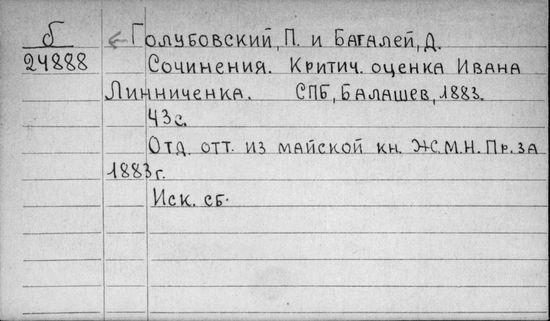 б ← Голубовский, П. и Багалей, Д.
24888 Сочинения. Критич. оценка Ивана
Линниченка. СПБ, Балашев, 1883.
43 с.
Отд. отт. из майской кн. Ж.М.Н.Пр. за
1883 г.
Иск. сб.